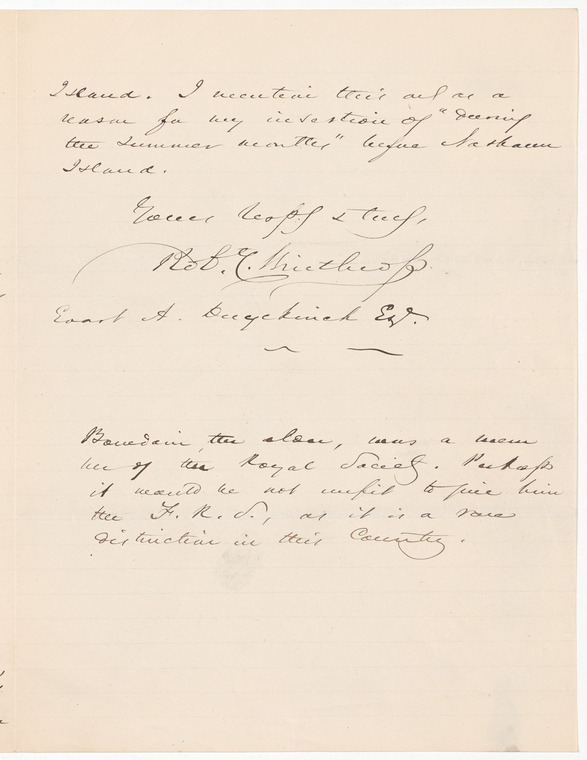 Island. I mention this only as a
reason for my insertion of "during
the summer months" before Nashaun
Island.
Yours respy & truly,
Robt. C. Winthrop
Evart A. Duyckinck Esq.
Bowdoin, the elder, was a mem
ber of the Royal Society. Perhaps
it would be not unfit to give him
the F. R. S., as it is a rare
distinction in this Country.